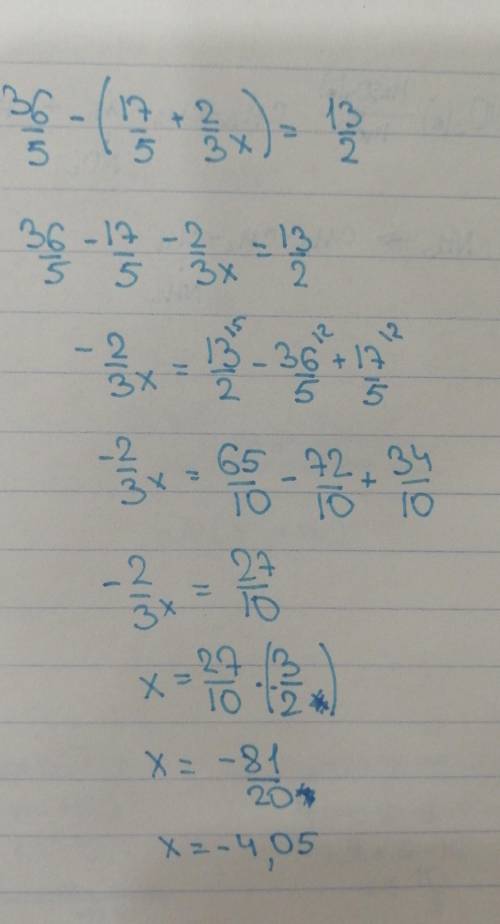 36/5 - (17/5 + 2/3 x) = 13/2
36/5 - 17/5 - 2/3 x = 13/2
-2/3 x = 13/2 |5 - 36/5 |2 + 17/5 |2
-2/3 x = 65/10 - 72/10 + 34/10
-2/3 x = 27/10
x = 27/10 · (-3/2)
x = -81/20
x = -4,05